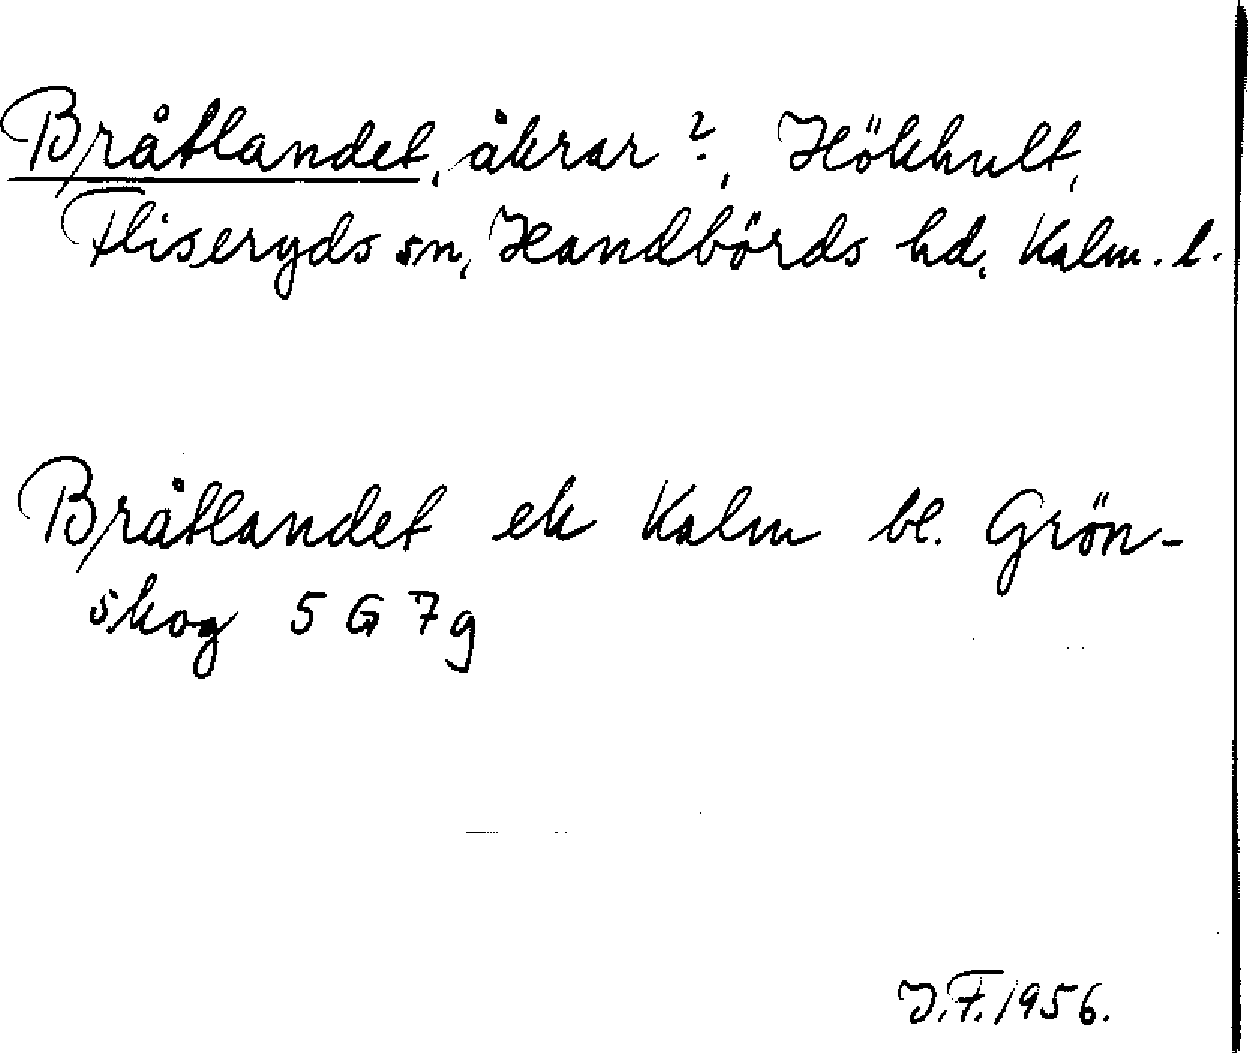 Bråtlandet, åkrar?, Hökhult,
Fliseryds sn, Handbörds hd, Kalm. l.
Bråtlandet ek Kalm bl. Grön-
skog 5 G 7 g
J.F. 1956.